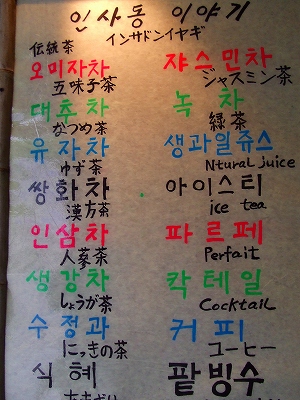 인사동 이야기
インサドンイヤギ
伝統茶
오미자차
五味子茶
대추차
なつめ茶
유자차
ゆず茶
쌍화차
漢方茶
인삼차
人蔘茶
생강차
しょうが茶
수정과
にっきの茶
식혜
쟈스민차
ジャスミン茶
녹차
緑茶
생과일쥬스
Ntural juice
아이스티
ice tea
파르페
Perfait
칵테일
Cocktail
커피
コーヒー
팥빙수